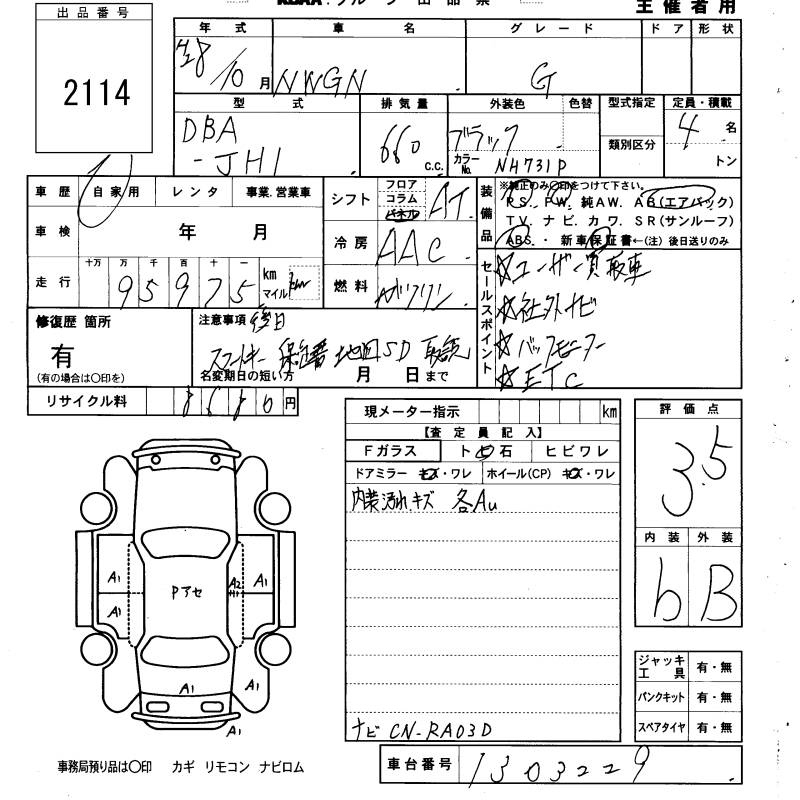 出品番号
2114
主催者用
年式 車名 グレード ドア 形状
10月 NWGN G
型式 排気量 外装色 色替 型式指定 定員・積載
DBA
-JH1
660 c.c.
ブラック
カラーNo. NH731P
類別区分
4 名
トン
車歴 自家用 レンタ 事業.営業車
シフト フロア コラム パネル AT
装備品
※純正のみ〇印をつけて下さい。
P.S. P.W. 純A.W. A.B(エアバック)
T.V. ナビ. カワ. S.R(サンルーフ)
ABS. ・ 新車保証書←(注) 後日送りのみ
車検 年 月
冷房 AAC
走行 十万 万 千 百 十 一
95975
km マイル
燃料 ガソリン
セールスポイント
☆ユーザー買取車
☆社外ナビ
☆バックモニター
☆ETC
修復歴 箇所
有
(有の場合は〇印を)
注意事項 後日
スマートキー 保証書 地図SD 取説
名変期日の短い方 月 日まで
リサイクル料 8680円
現メーター指示 km
【査定員記入】
Fガラス ト石 ヒビワレ
ドアミラー キズ・ワレ ホイール(CP) キズ・ワレ
内装汚れ.キズ 各Au
ナビ CN-RA03D
評価点
3.5
内装 外装
b B
A1
A1
Pアセ
A2
A1
A1
A1
A1
A1
ジャッキ工具 有・無
パンクキット 有・無
スペアタイヤ 有・無
事務局預り品は〇印 カギ リモコン ナビロム
車台番号 1303229